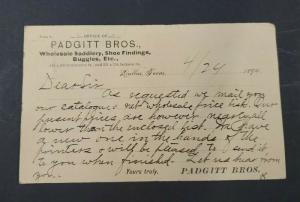 OFFICE OF
PADGITT BROS.,
Wholesale Saddlery, Shoe Findings,
Buggies, Etc.,
Texas, 4/24 189
Dear Sir
As requested we mail you
our catalogue & net wholesale price list. Our
present prices are however generally
lower than the enclosed list. We have
a new one in the hands of the
printers & will be pleased to send it
to you when finished. Let us hear from
you.
Yours truly, PADGITT BROS.